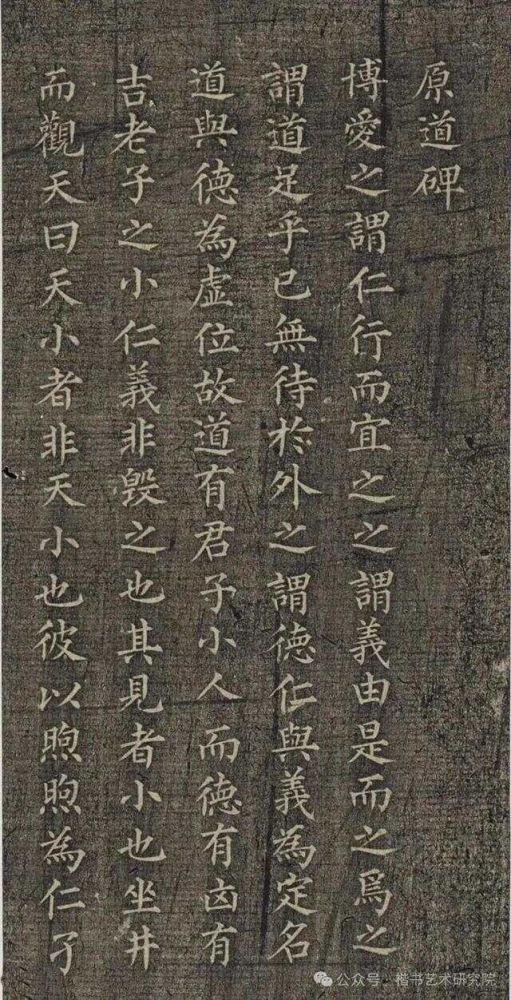 原道碑
博愛之謂仁行而宜之之謂義由是而之焉之
謂道足乎已無待於外之謂德仁與義為定名
道與德為虛位故道有君子小人而德有凶有
吉老子之小仁義非毀之也其見者小也坐井
而觀天曰天小者非天小也彼以煦煦為仁孑
公众号·楷书艺术研究院